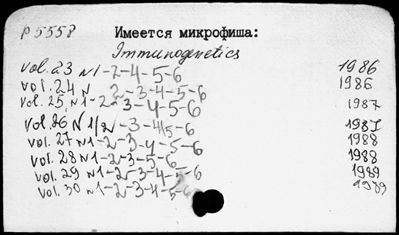 р 5558 Имеется микрофиша:
Immunogenetics
vol. 23 N1-2-4-5-6 1986
vol. 24 N 2-3-4-5-6 1986
vol. 25, N1-2-3-4-5-6 1987
vol. 26 N1/2-3-4/5-6 1987
vol. 27 N1-2-3-4-5-6 1988
vol. 28 N1-2-3-5-6 1988
vol. 29 N1-2-3-4-5-6 1989
vol. 30 N1-2-3-4-5-6 1989